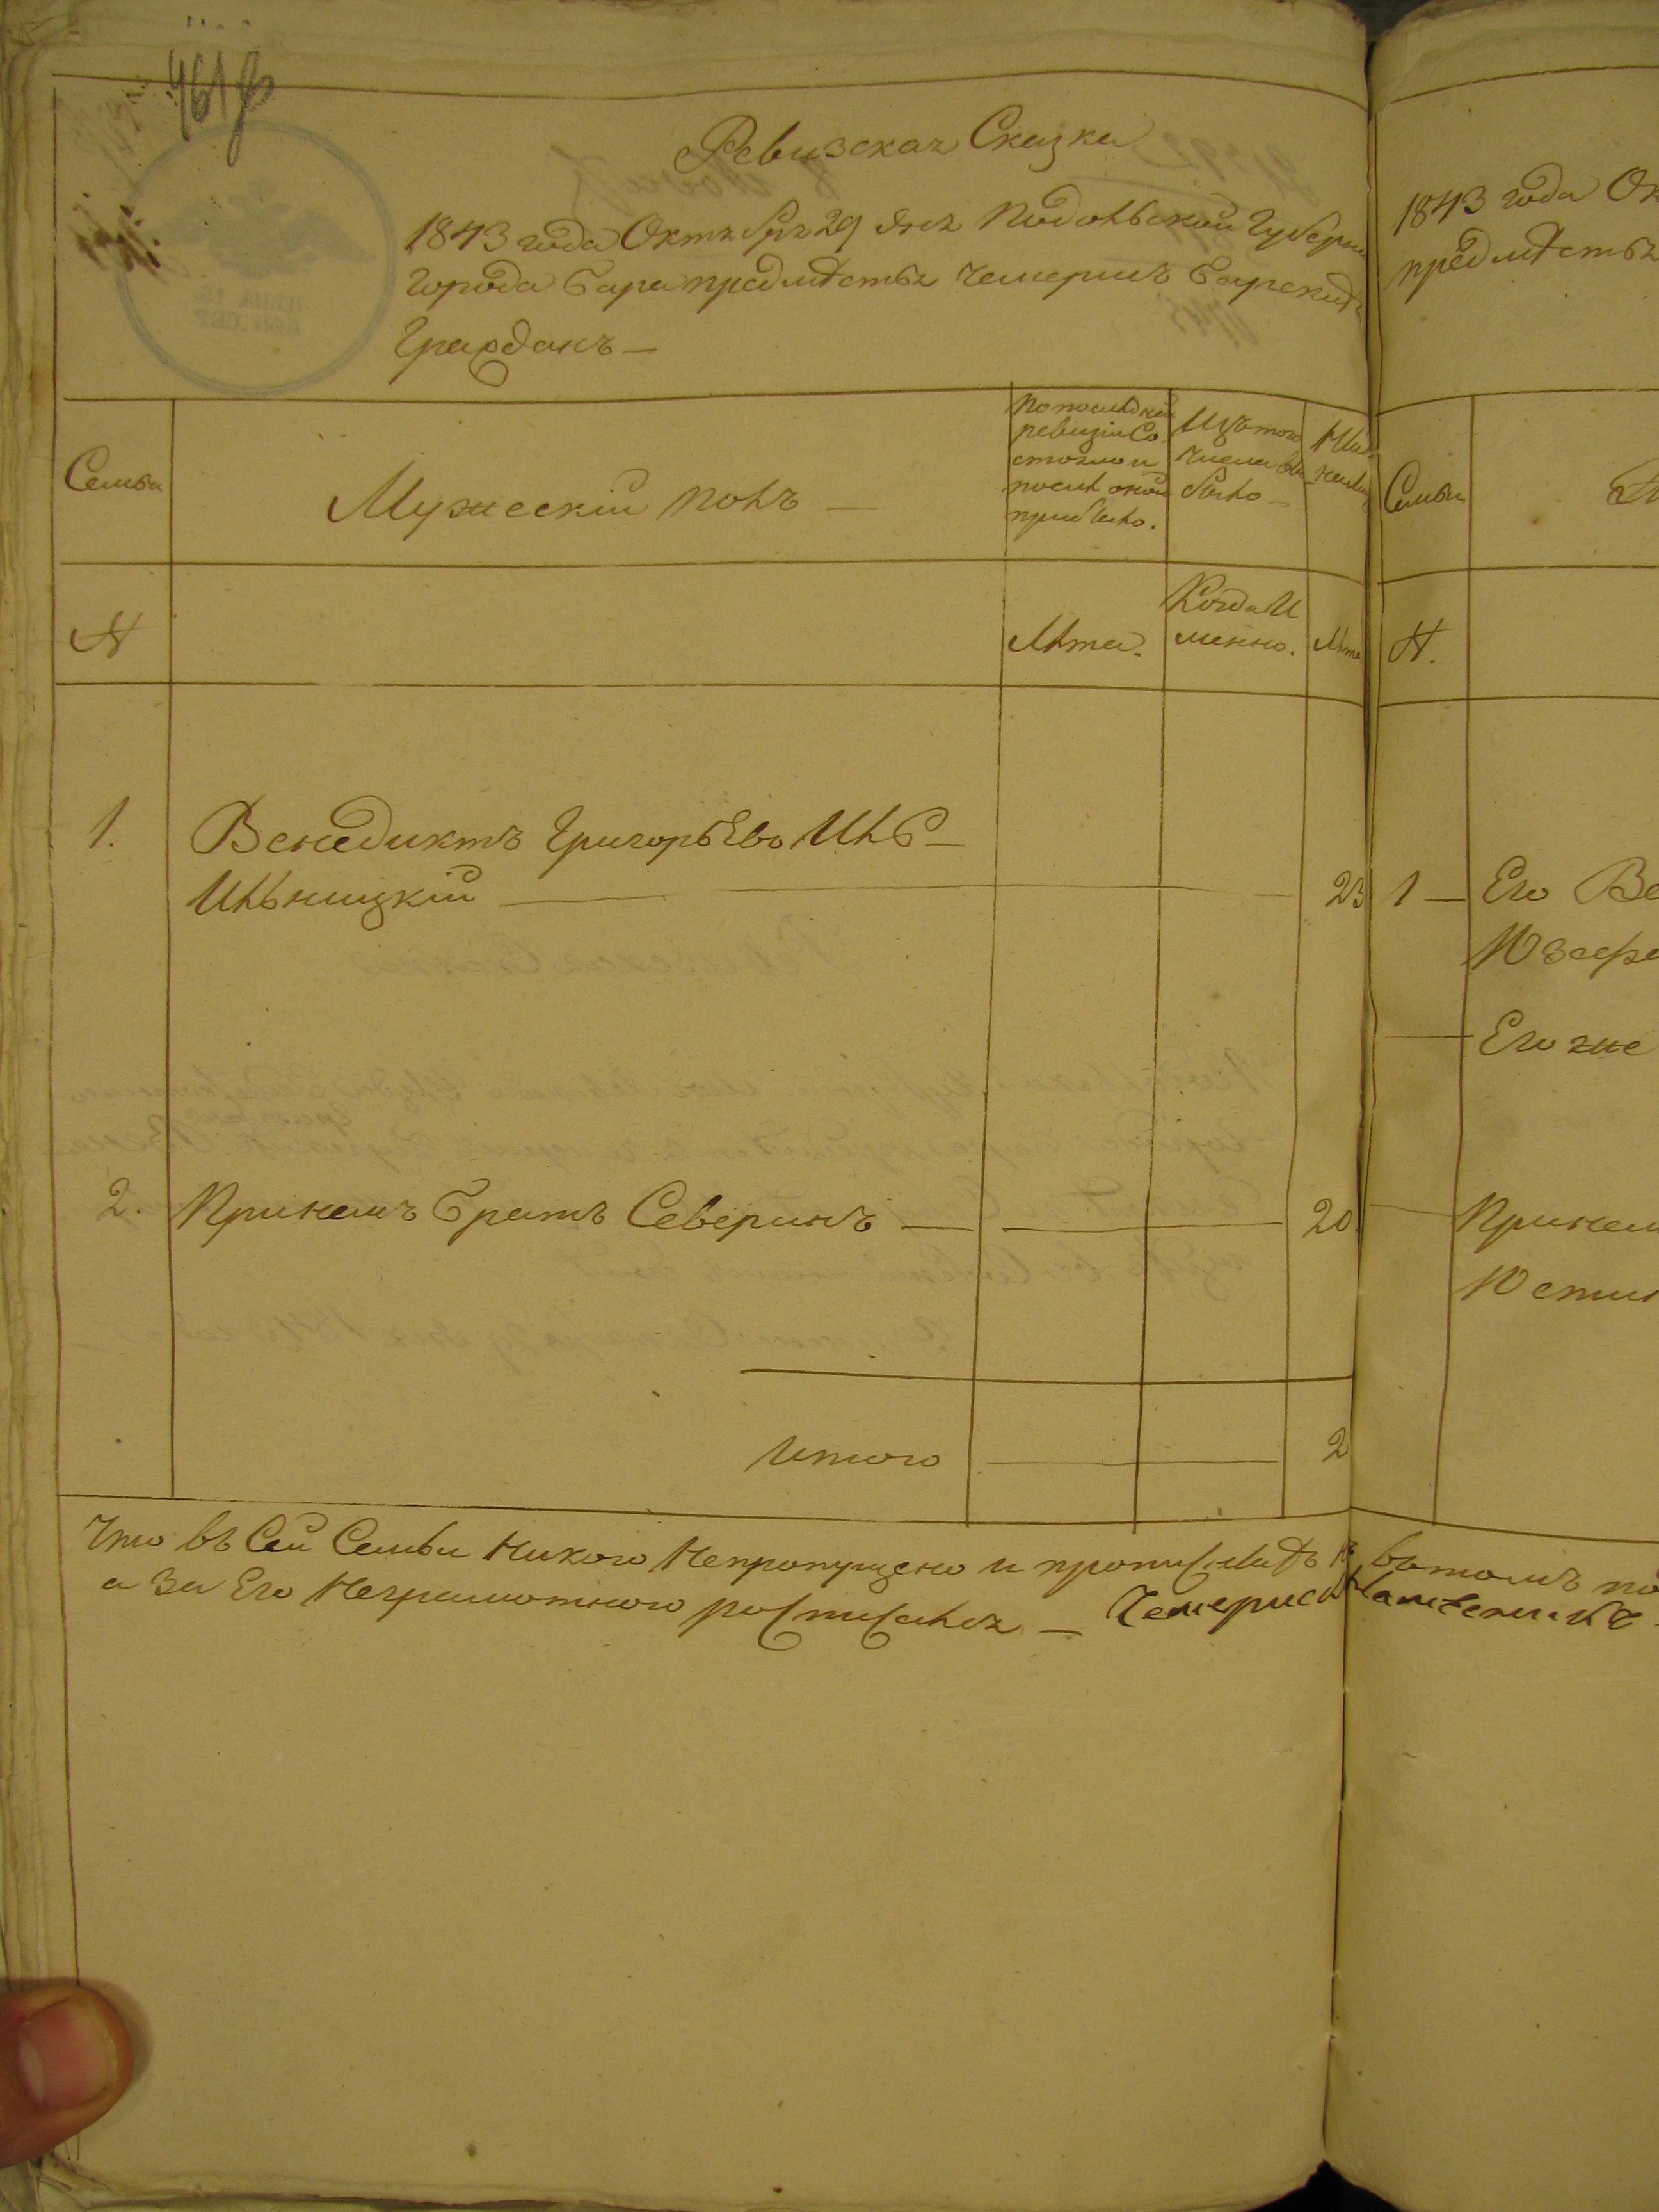 Ревизская Сказка
1843 года Октября 29 дня Подольской Губерни
города Бара предмѣстья Чемерисъ Барскихъ
Гражданъ —
Семьи
Мужескій полъ —
По последней ревизіи Состояло и послѣ оной прибыло.
Изъ того числа выбыло —
N
Лѣта.
Когда Именно.
Лѣта
1. Венедиктъ Григорьевъ Иль-
Ильницкій — 23
2. При немъ братъ Северинъ — 20.
Итого — 2
Что въ Сей Семьи Никого Непропущено и прописныхъ
а за Его Неграмотного росписался —
1843 года Ок
предмѣстья
Семьи
N.
1 — Его Ве
Юзефа
Его же
При нем
Юстин
въ томъ по